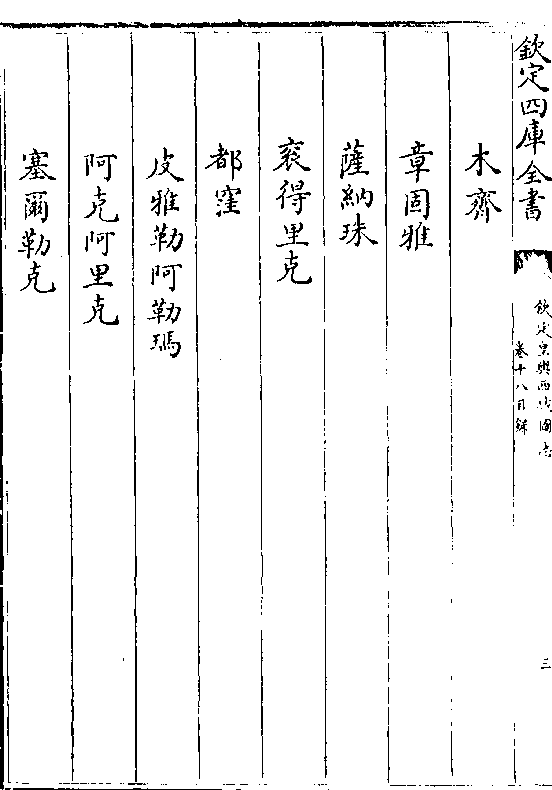 欽定四庫全書
欽定皇輿西域圖志
卷十八目録
三
木齊
章固雅
薩納珠
衮得里克
都窪
皮雅勒阿勒瑪
阿克阿里克
塞爾勒克